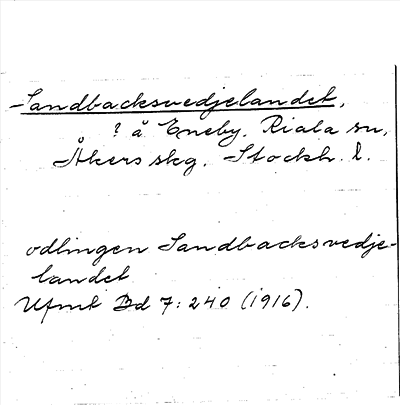 Sandbacksvedjelandet,
? å Eneby. Riala sn,
Åkers skg. Stockh. l.
odlingen Sandbacksvedje-
landet
Ufmt Bd 7: 240 (1916).